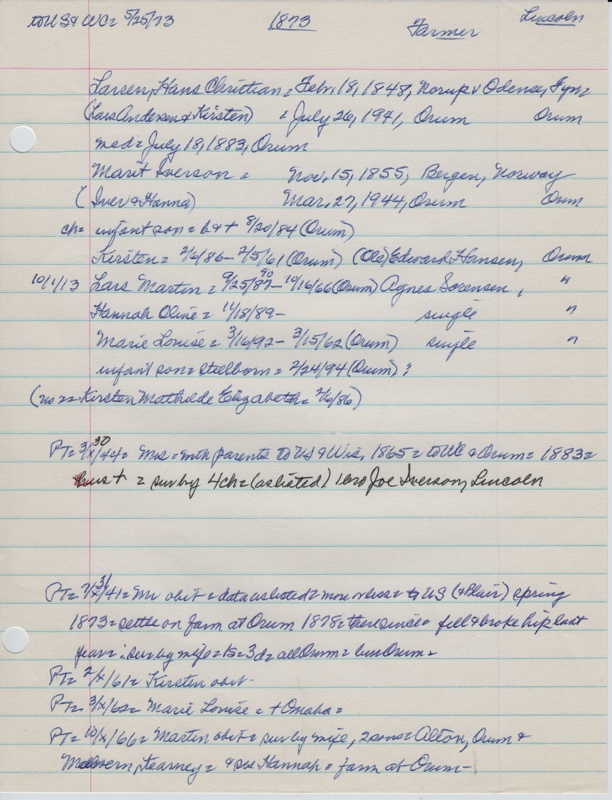 to US & WC = 5/25/73 1873 Farmer Lincoln
Larsen, Hans Christian = Febr. 18, 1848, Norup v Odense, Fyn =
(Lars Andersen & Kirsten) + July 26, 1941, Orum Orum
med = July 18, 1883, Orum
Marit Iverson = Nov. 15, 1855, Bergen, Norway
(Iver & Hanna) Mar. 27, 1944, Orum Orum
ch = infant son = b & + 8/20/84 (Orum)
Kirsten = 2/6/86 - 2/5/61 (Orum) (Ole) Edward Hansen, Orum
10/1/13 Lars Martin = 9/25/87 90 - 10/16/66 (Orum) Agnes Sorensen, "
Hannah Oline = 11/18/89 - single "
Marie Louise = 3/16/92 - 3/15/62 (Orum) single "
infant son = stillborn = 2/24/94 (Orum) ?
(no 2 = Kirsten Mathilde Elizabeth = 2/6/86)
PT = 3/30/44 = Mrs = with parents to US & Wis, 1865 = to WC & Orum = 1883 =
hus + = sur by 4 ch = (as listed) 1 bro Joe Iverson, Lincoln
PT = 7/31/41 = Mr obit = data as listed = more or less = to US (& Blair) spring
1873 = settle on farm at Orum 1878 = there since = fell & broke hip last
year = sur by wife = 1s = 3d = all Orum = bur Orum =
PT = 2/x/61 = Kirsten obit -
PT = 3/x/62 = Marie Louise = + Omaha =
PT = 10/x/66 = Martin obit = sur by wife, 2 sons = Alton, Orum &
Malvern, Kearney = & sis Hannah = farm at Orum -